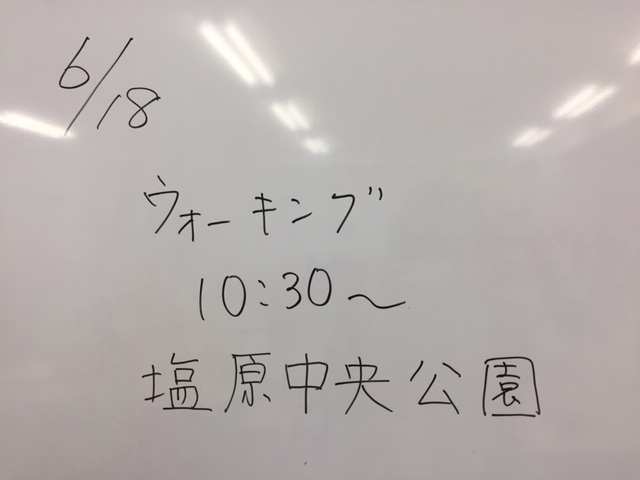 6/18
ウォーキング
10:30～
塩原中央公園